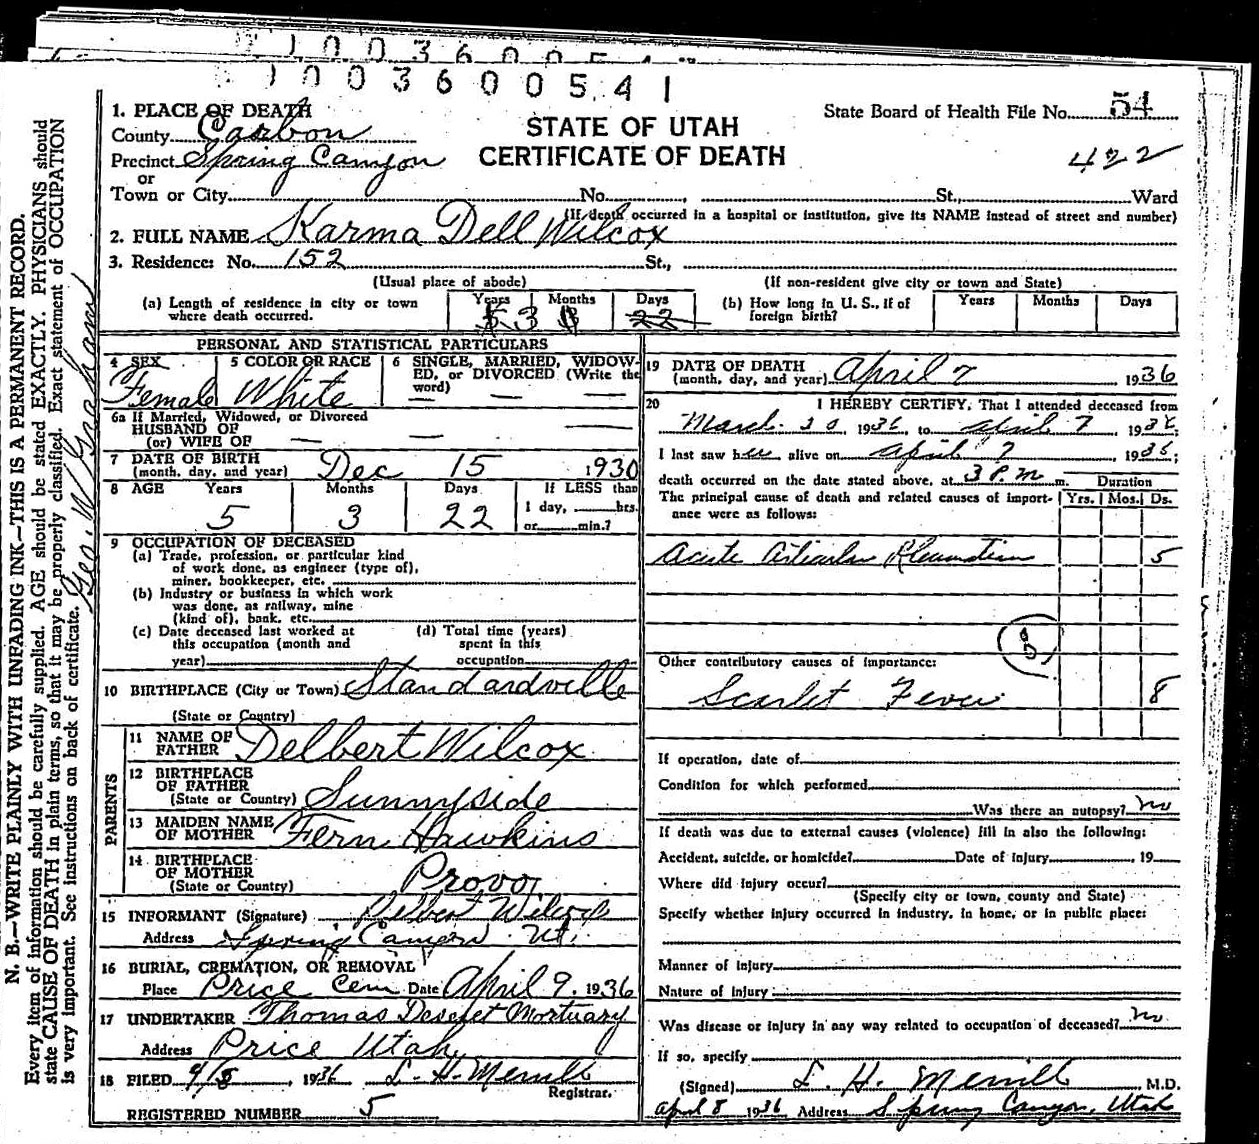 1003600541
1. PLACE OF DEATH
County Carbon
Precinct Spring Canyon
or
Town or City No. St., Ward
(If death occurred in a hospital or institution, give its NAME instead of street and number)
STATE OF UTAH
CERTIFICATE OF DEATH
State Board of Health File No. 54
422
2. FULL NAME Karma Dell Wilcox
3. Residence: No. 152 St.,
(Usual place of abode) (If non-resident give city or town and State)
(a) Length of residence in city or town where death occurred. Years Months Days 22
(b) How long in U. S., if of foreign birth? Years Months Days
PERSONAL AND STATISTICAL PARTICULARS
4 SEX Female
5 COLOR OR RACE White
6 SINGLE, MARRIED, WIDOWED, or DIVORCED (Write the word) — — —
6a If Married, Widowed, or Divorced
HUSBAND OF
(or) WIFE OF — — —
7 DATE OF BIRTH
(month, day, and year) Dec 15 1930
8 AGE Years Months Days If LESS than
5 3 22 1 day, hrs.
or min.?
9 OCCUPATION OF DECEASED
(a) Trade, profession, or particular kind
of work done, as engineer (type of),
miner, bookkeeper, etc.
(b) Industry or business in which work
was done, as railway, mine
(kind of), bank, etc.
(c) Date deceased last worked at
this occupation (month and
year)
(d) Total time (years)
spent in this
occupation
10 BIRTHPLACE (City or Town) Standardville
(State or Country)
PARENTS
11 NAME OF
FATHER Delbert Wilcox
12 BIRTHPLACE
OF FATHER
(State or Country) Sunnyside
13 MAIDEN NAME
OF MOTHER Fern Hawkins
14 BIRTHPLACE
OF MOTHER
(State or Country) Provo
15 INFORMANT (Signature) Delbert Wilcox
Address Spring Canyon Ut.
16 BURIAL, CREMATION, OR REMOVAL
Place Price Cem Date April 9, 1936
17 UNDERTAKER Thomas Deseret Mortuary
Address Price Utah
18 FILED 4/8, 1936 L. H. Merrill
Registrar.
REGISTERED NUMBER 5
19 DATE OF DEATH
(month, day, and year) April 7 1936
20 I HEREBY CERTIFY, That I attended deceased from
March 30 1936, to April 7 1936;
I last saw her alive on April 7 1936;
death occurred on the date stated above, at 3 P.M m.
Duration
The principal cause of death and related causes of importance were as follows: Yrs. Mos. Ds.
Acute Articular Rheumatism 5
Other contributory causes of importance:
Scarlet Fever 8
If operation, date of
Condition for which performed
Was there an autopsy? no
If death was due to external causes (violence) fill in also the following:
Accident, suicide, or homicide? Date of injury , 19
Where did injury occur?
(Specify city or town, county and State)
Specify whether injury occurred in industry, in home, or in public place:
Manner of injury
Nature of injury
Was disease or injury in any way related to occupation of deceased? no
If so, specify
(Signed) L. H. Merrill, M.D.
April 8 1936 Address Spring Canyon, Utah
N. B.—WRITE PLAINLY WITH UNFADING INK—THIS IS A PERMANENT RECORD.
Every item of information should be carefully supplied. AGE should be stated EXACTLY. PHYSICIANS should
state CAUSE OF DEATH in plain terms, so that it may be properly classified. Exact statement of OCCUPATION
is very important. See instructions on back of certificate.
Geo. W. Graham